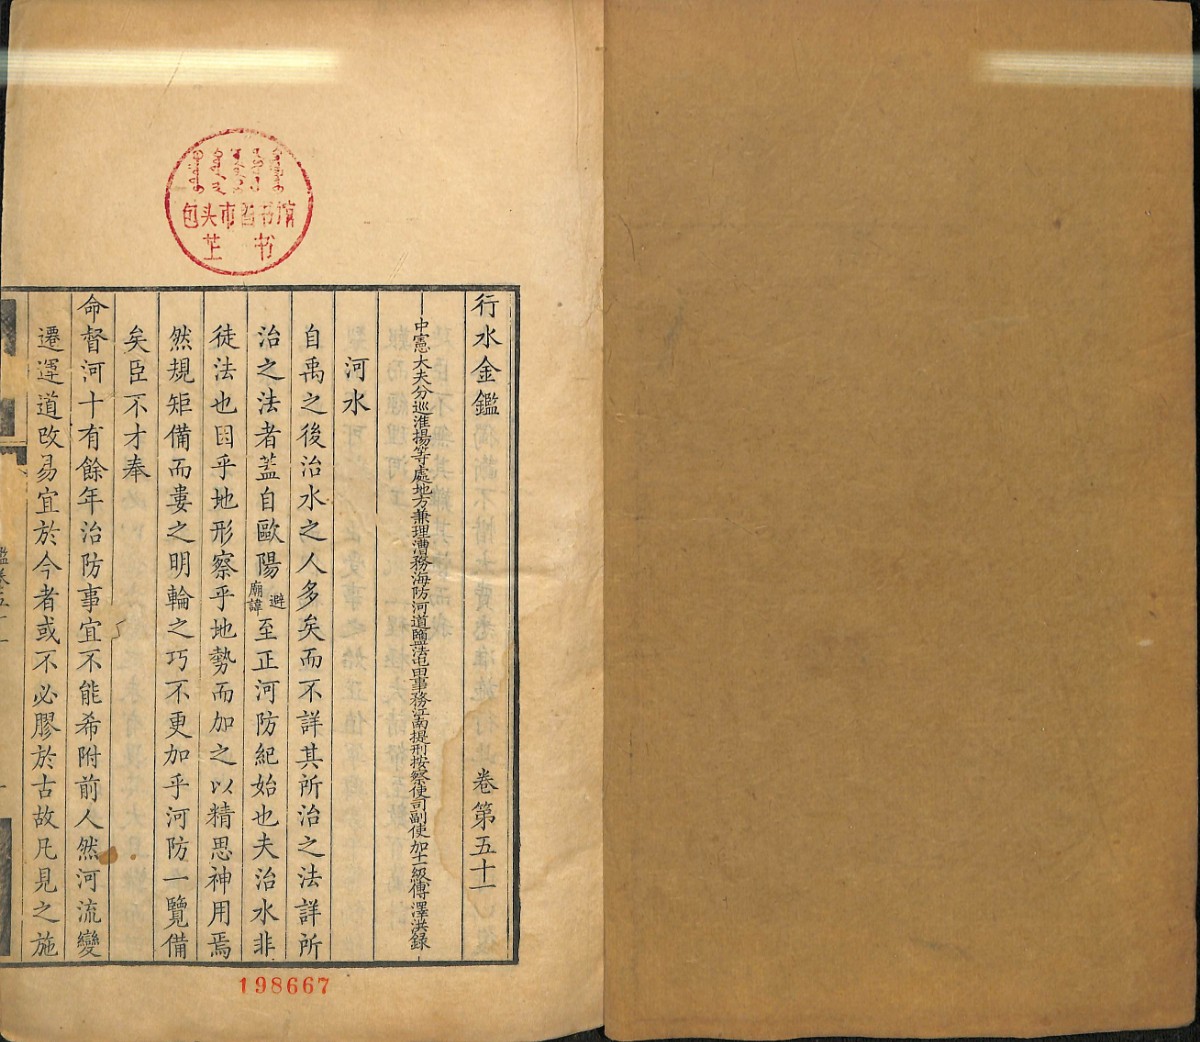 行水金鑑 卷第五十一
中憲大夫分巡淮揚等處地方兼理漕務海防河道鹽法屯田事務江南提刑按察使司副使加二級傅澤洪錄
河水
自禹之後治水之人多矣而不詳其所治之法詳所
治之法者蓋自歐陽避廟諱至正河防紀始也夫治水非
徒法也因乎地形察乎地勢而加之以精思神用焉
然規矩備而婁之明輪之巧不更加乎河防一覽備
矣臣不才奉
命督河十有餘年治防事宜不能希附前人然河流變
遷運道改易宜於今者或不必膠於古故凡見之施
包头市图书馆
藏书
198667